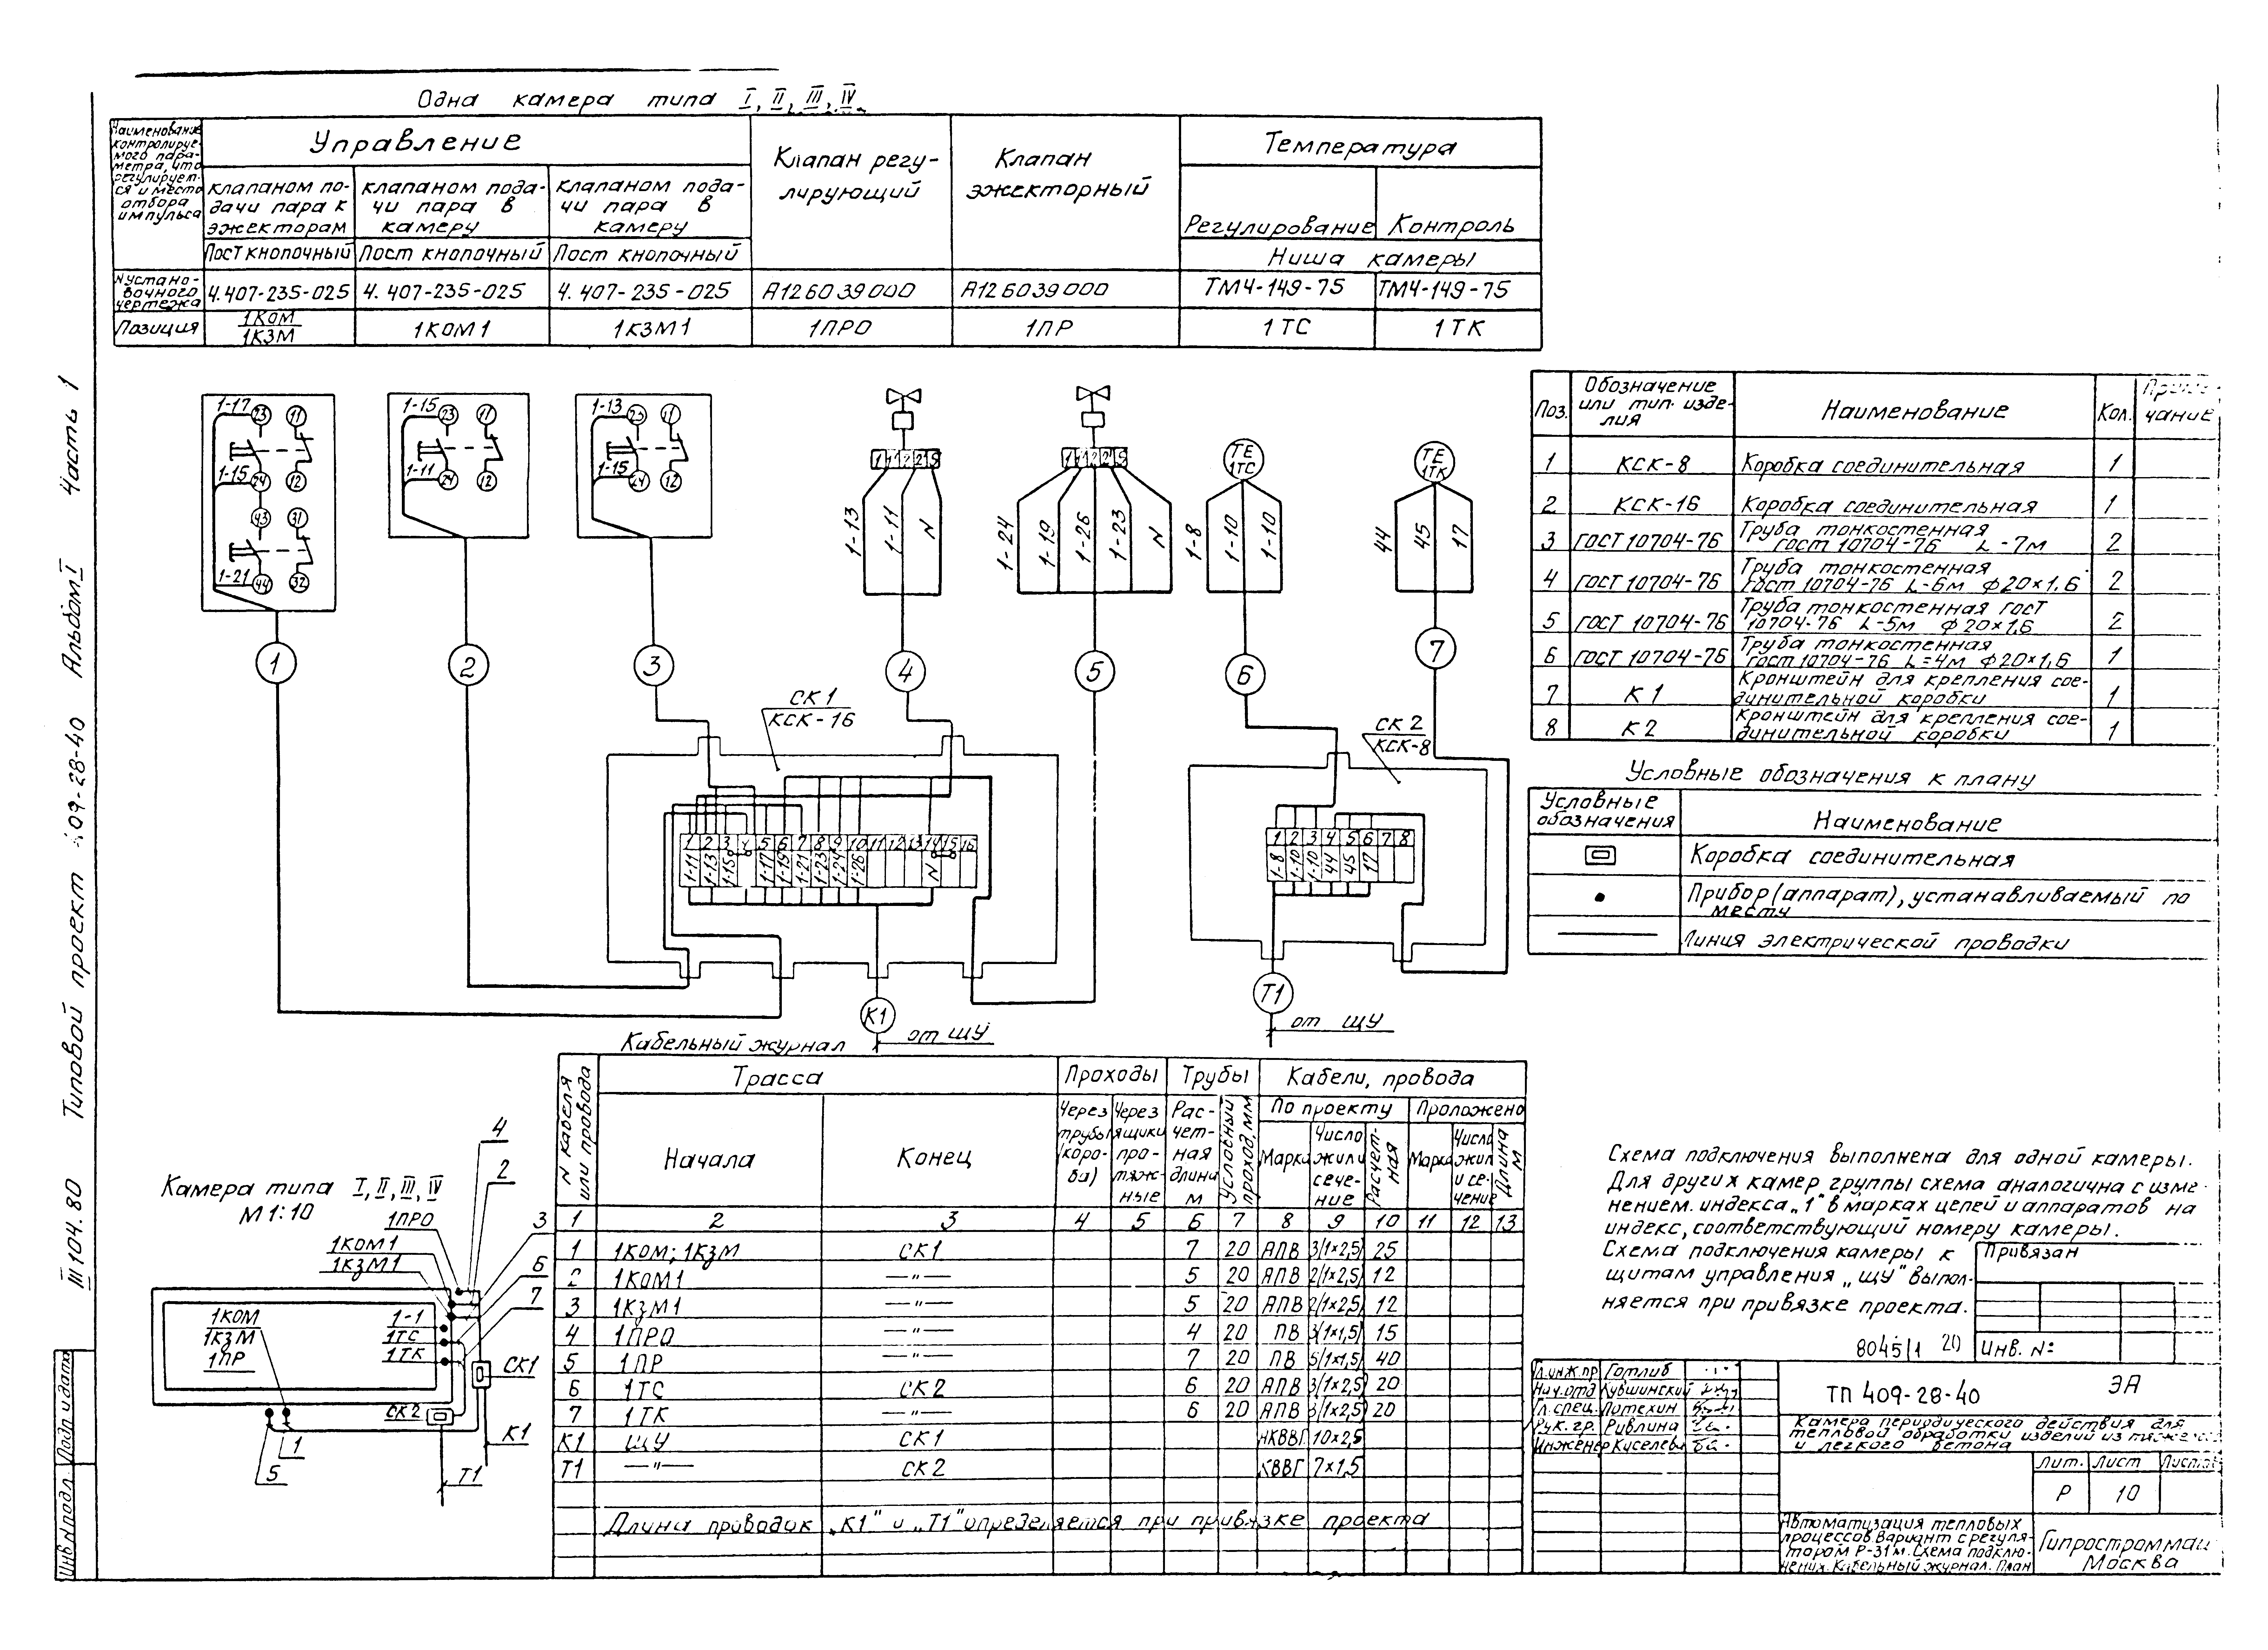 Одна камера типа I, II, III, IV
Наименование
контролируе-
мого пара-
метра, что
регулирует-
ся и место
отбора
импульса
Управление
клапаном по-
дачи пара к
эжекторам
клапаном пода-
чи пара в
камеру
клапаном пода-
чи пара в
камеру
Пост кнопочный
Пост кнопочный
Пост кнопочный
Клапан регу-
лирующий
Клапан
эжекторный
Температура
Регулирование
Контроль
Ниша камеры
N устано-
вочного
чертежа
4.407-235-025
4.407-235-025
4.407-235-025
А126039000
А126039000
ТМ4-149-75
ТМ4-149-75
Позиция
1КОМ
1КЗМ
1КОМ1
1КЗМ1
1ПРО
1ПР
1ТС
1ТК
1-17 23 11
1-15 24 12
43 31
1-21 44 32
1-15 23 11
1-11 24 12
1-13 23 11
1-15 24 12
1-13 1-11 N
1-24 1-19 1-26 1-23 N
ТЕ
1ТС
1-8 1-10 1-10
ТЕ
1ТК
44 45 17
1 2 3 4 5 6 7
СК1
КСК-16
СК2
КСК-8
1 2 3 4 5 6 7 8 9 10 11 12 13 14 15 16
1-11 1-13 1-15 1-17 1-19 1-21 1-23 1-24 1-26 N
1 2 3 4 5 6 7 8
1-8 1-10 1-10 44 45 17
К1
от ЩУ
Т1
от ЩУ
Поз.
Обозначение
или тип. изде-
лия
Наименование
Кол.
Приме-
чание
1 КСК-8 Коробка соединительная 1
2 КСК-16 Коробка соединительная 1
3 ГОСТ 10704-76 Труба тонкостенная
ГОСТ 10704-76 L-7м 2
4 ГОСТ 10704-76 Труба тонкостенная
ГОСТ 10704-76 L-6м ф20×1,6 2
5 ГОСТ 10704-76 Труба тонкостенная ГОСТ
10704-76 L-5м ф20×1,6 2
6 ГОСТ 10704-76 Труба тонкостенная
ГОСТ 10704-76 L=4м ф20×1,6 1
7 К1 Кронштейн для крепления сое-
динительной коробки 1
8 К2 Кронштейн для крепления сое-
динительной коробки 1
Условные обозначения к плану
Условные
обозначения
Наименование
Коробка соединительная
Прибор (аппарат), устанавливаемый по
месту
Линия электрической проводки
Кабельный журнал
N кабеля
или провода
Трасса
Проходы
Трубы
Кабели, провода
Начала
Конец
Через
трубы
(коро-
ба)
Через
ящики
про-
тяж-
ные
Рас-
чет-
ная
длина
м
Условный
проход, мм
По проекту
Проложено
Марка
Число
жил и
сече-
ние
Расчет-
ная
Марка
Число
жил
и се-
чение
Длина
м
1 2 3 4 5 6 7 8 9 10 11 12 13
1 1КОМ; 1КЗМ СК1 7 20 АПВ 3(1×2,5) 25
2 1КОМ1 —"— 5 20 АПВ 2(1×2,5) 12
3 1КЗМ1 —"— 5 20 АПВ 2(1×2,5) 12
4 1ПРО —"— 4 20 ПВ 3(1×1,5) 15
5 1ПР —"— 7 20 ПВ 5(1×1,5) 40
6 1ТС СК2 6 20 АПВ 3(1×2,5) 20
7 1ТК —"— 6 20 АПВ 3(1×2,5) 20
К1 ЩУ СК1 АКВВГ 10×2,5
Т1 —"— СК2 КВВГ 7×1,5
Длина проводок „К1" и „Т1" определяется при привязке проекта
Камера типа I, II, III, IV
М 1:10
1ПРО
1КОМ1
1КЗМ1
4
2
3
6
7
1КОМ
1КЗМ
1ПР
1-1
1ТС
1ТК
СК1
СК2
К1
Т1
5
1
Схема подключения выполнена для одной камеры.
Для других камер группы схема аналогична с изме-
нением. индекса „1" в марках цепей и аппаратов на
индекс, соответствующий номеру камеры.
Схема подключения камеры к
щитам управления „ЩУ" выпол-
няется при привязке проекта.
8045/1 20
Привязан
Инв. N:
Гл.инж.пр. Готлиб
Нач.отд. Кувшинский
Гл.спец. Потехин
Рук. гр. Ривлина
Инженер Киселева
ТП 409-28-40
ЭА
Камера периодического действия для
тепловой обработки изделий из тяжелого
и легкого бетона
Лит. Лист
Р 10
Автоматизация тепловых
процессов. Вариант с регуля-
тором Р-31м. Схема подклю-
чения. Кабельный журнал. План
Гипростроммаш
Москва
III 104.80 Типовой проект 409-28-40 Альбом I Часть 1
Инв N подл. Подп. и дата